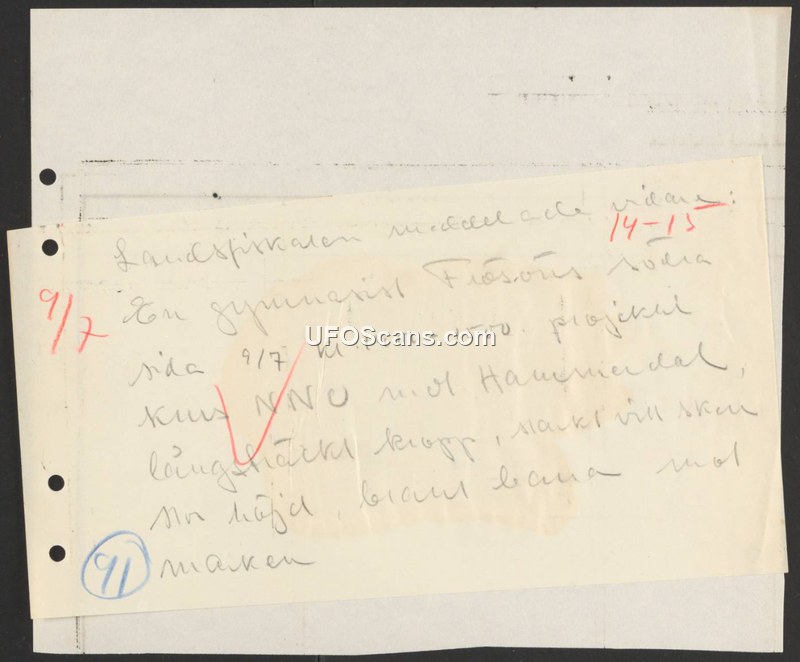 Landsfiskalen meddelade vidare:
14-15
9/7
En gymnasist Frösöns södra
sida 9/7 kl 1500. projektil
kurs NNO mot Hammerdal,
långsträckt kropp, starkt vitt sken
stor höjd, brant bana mot
91
marken
UFOScans.com